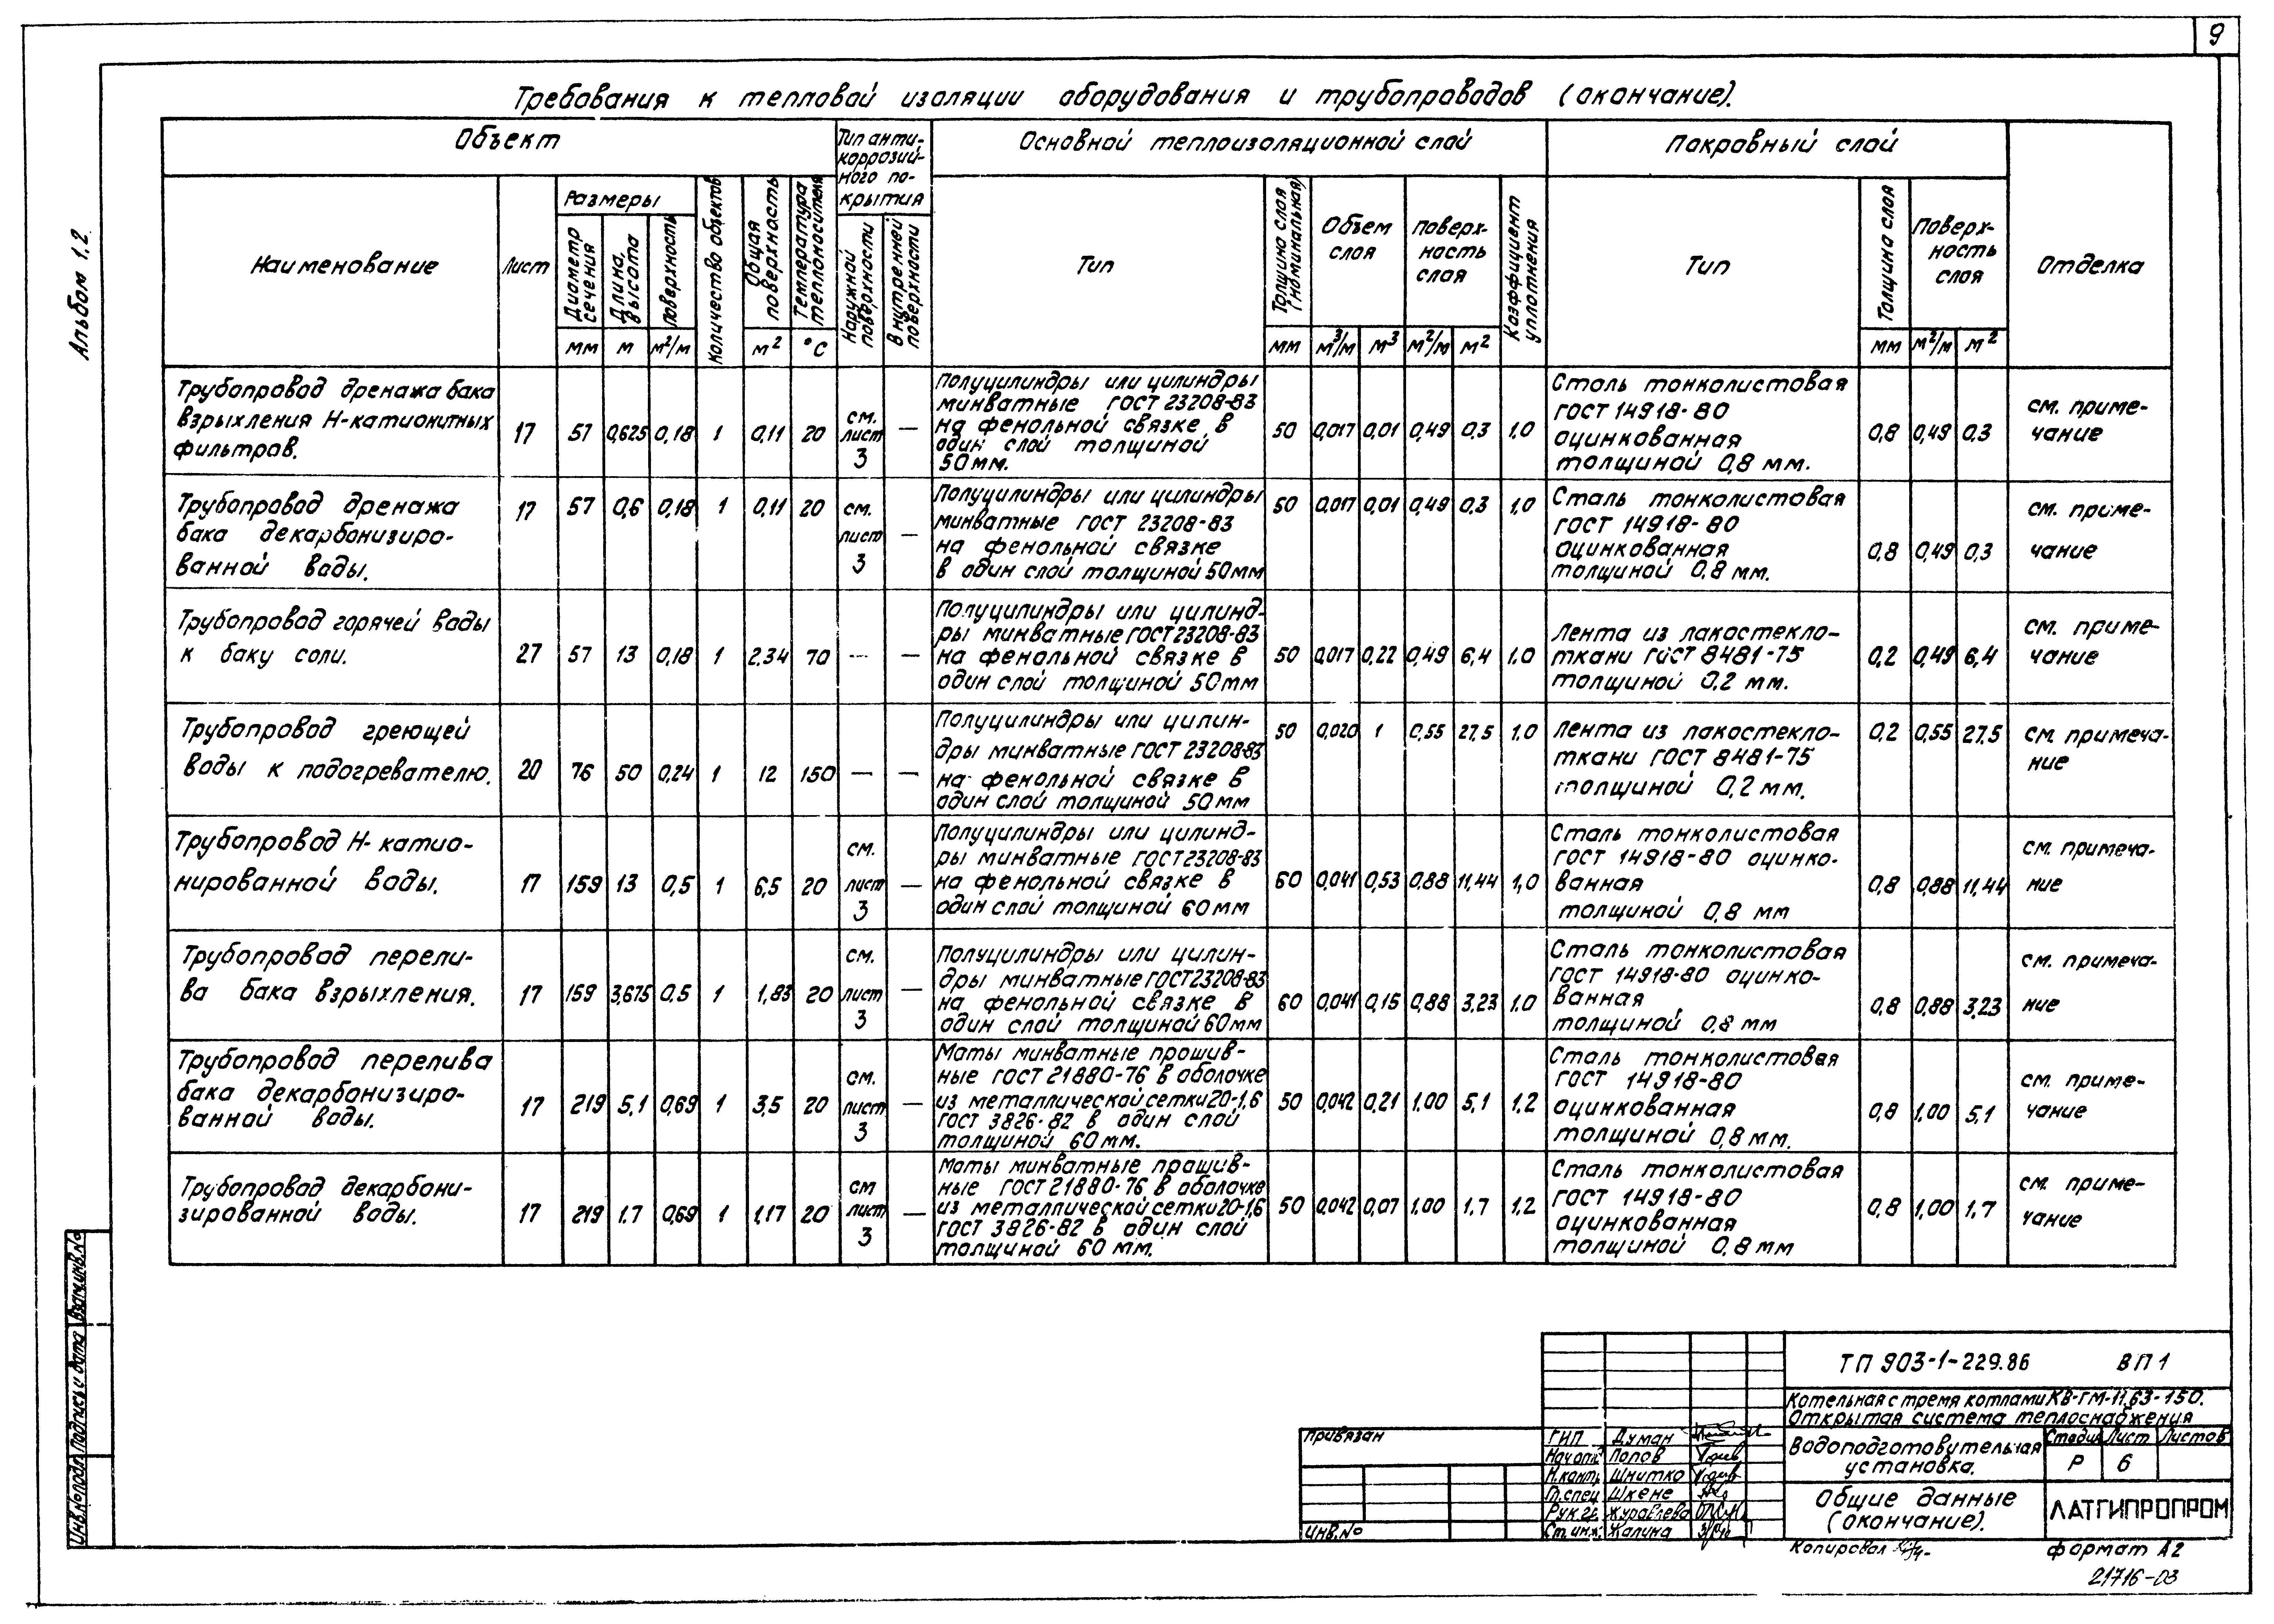 9
Требования к тепловой изоляции оборудования и трубопроводов (окончание).
Альбом 1.2
Объект
Тип анти-
коррозий-
ного по-
крытия
Основной теплоизоляционной слой
Покровный слой
Отделка
Наименование
Лист
Размеры
Диаметр сечения
Длина, высота
Поверхность
Количество объектов
Общая поверхность
Температура теплоносителя
Наружной поверхности
Внутренней поверхности
Тип
Толщина слоя (номинальная)
Объем слоя
Поверх-
ность
слоя
Коэффициент уплотнения
Тип
Толщина слоя
Поверх-
ность
слоя
мм м м²/м м² °С мм м³/м м³ м²/м м² мм м²/м м²
Трубопровод дренажа бака
взрыхления Н-катионитных
фильтров.
17 57 0,625 0,18 1 0,11 20
см.
лист
3
—
Полуцилиндры или цилиндры
минватные ГОСТ 23208-83
на фенольной связке в
один слой толщиной
50мм.
50 0,017 0,01 0,49 0,3 1,0
Сталь тонколистовая
ГОСТ 14918-80
оцинкованная
толщиной 0,8 мм.
0,8 0,49 0,3
см. приме-
чание
Трубопровод дренажа
бака декарбонизиро-
ванной воды.
17 57 0,6 0,18 1 0,11 20
см.
лист
3
—
Полуцилиндры или цилиндры
минватные ГОСТ 23208-83
на фенольной связке
в один слой толщиной 50мм
50 0,017 0,01 0,49 0,3 1,0
Сталь тонколистовая
ГОСТ 14918-80
оцинкованная
толщиной 0,8 мм.
0,8 0,49 0,3
см. приме-
чание
Трубопровод горячей воды
к баку соли.
27 57 13 0,18 1 2.34 70 — —
Полуцилиндры или цилинд-
ры минватные ГОСТ 23208-83
на фенольной связке в
один слой толщиной 50мм
50 0,017 0,22 0,49 6,4 1,0
Лента из лакостекло-
ткани ГОСТ 8481-75
толщиной 0.2 мм.
0,2 0,49 6,4
см. приме-
чание
Трубопровод греющей
воды к подогревателю.
20 76 50 0,24 1 12 150 — —
Полуцилиндры или цилин-
дры минватные ГОСТ 23208-83
на фенольной связке в
один слой толщиной 50мм
50 0,020 1 0,55 27,5 1,0
Лента из лакостекло-
ткани ГОСТ 8481-75
толщиной 0,2 мм.
0,2 0,55 27,5
см. примеча-
ние
Трубопровод Н-катио-
нированной воды.
17 159 13 0,5 1 6,5 20
см.
лист
3
—
Полуцилиндры или цилинд-
ры минватные ГОСТ 23208-83
на фенольной связке в
один слой толщиной 60мм
60 0,041 0,53 0,88 11,44 1,0
Сталь тонколистовая
ГОСТ 14918-80 оцинко-
ванная
толщиной 0,8 мм
0,8 0,88 11,44
см. примеча-
ние
Трубопровод перели-
ва бака взрыхления.
17 159 3,675 0,5 1 1,83 20
см.
лист
3
—
Полуцилиндры или цилин-
дры минватные ГОСТ 23208-83
на фенольной связке в
один слой толщиной 60мм
60 0,041 0,15 0,88 3,23 1,0
Сталь тонколистовая
ГОСТ 14918-80 оцинко-
ванная
толщиной 0,8 мм
0,8 0,88 3,23
см. примеча-
ние
Трубопровод перелива
бака декарбонизиро-
ванной воды.
17 219 5,1 0,69 1 3,5 20
см.
лист
3
—
Маты минватные прошив-
ные ГОСТ 21880-76 в оболочке
из металлической сетки 20-1,6
ГОСТ 3826-82 в один слой
толщиной 60мм.
50 0,042 0,21 1,00 5,1 1,2
Сталь тонколистовая
ГОСТ 14918-80
оцинкованная
толщиной 0,8 мм.
0,8 1,00 5,1
см. приме-
чание
Трубопровод декарбони-
зированной воды.
17 219 1.7 0,69 1 1,17 20
см
лист
3
—
Маты минватные прошив-
ные ГОСТ 21880-76 в оболочке
из металлической сетки 20-1,6
ГОСТ 3826-82 в один слой
толщиной 60 мм.
50 0,042 0,07 1,00 1,7 1,2
Сталь тонколистовая
ГОСТ 14918-80
оцинкованная
толщиной 0,8 мм
0,8 1,00 1,7
см. приме-
чание
Взам.инв.№
Подпись и дата
Инв.№подл.
ТП 903-1-229.86 ВП1
Котельная с тремя котлами КВ-ГМ-11,63-150.
Открытая система теплоснабжения
Привязан
Инв.№
ГИП Думан
Нач.отд Попов
Н.контр. Шнитко
Гл.спец Шкене
Рук.гр. Журавлева
Ст.инж. Жалина
Водоподготовительная
установка.
Стадия Лист Листов
Р 6
Общие данные
(окончание).
ЛАТГИПРОПРОМ
Копировал
формат А2
21716-03